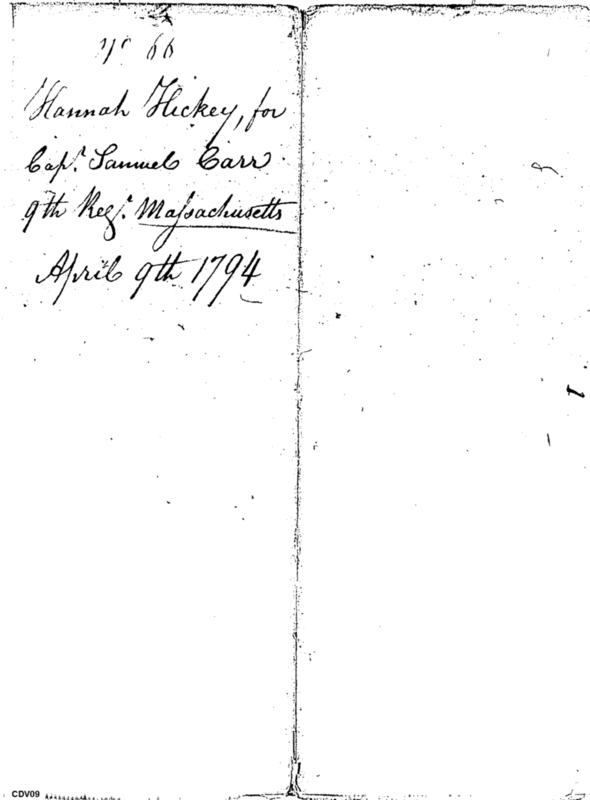 No 66
Hannah Hickey, for
Capt. Samuel Carr
9th Regt. Maſsachusetts
April 9th 1794
CDV09